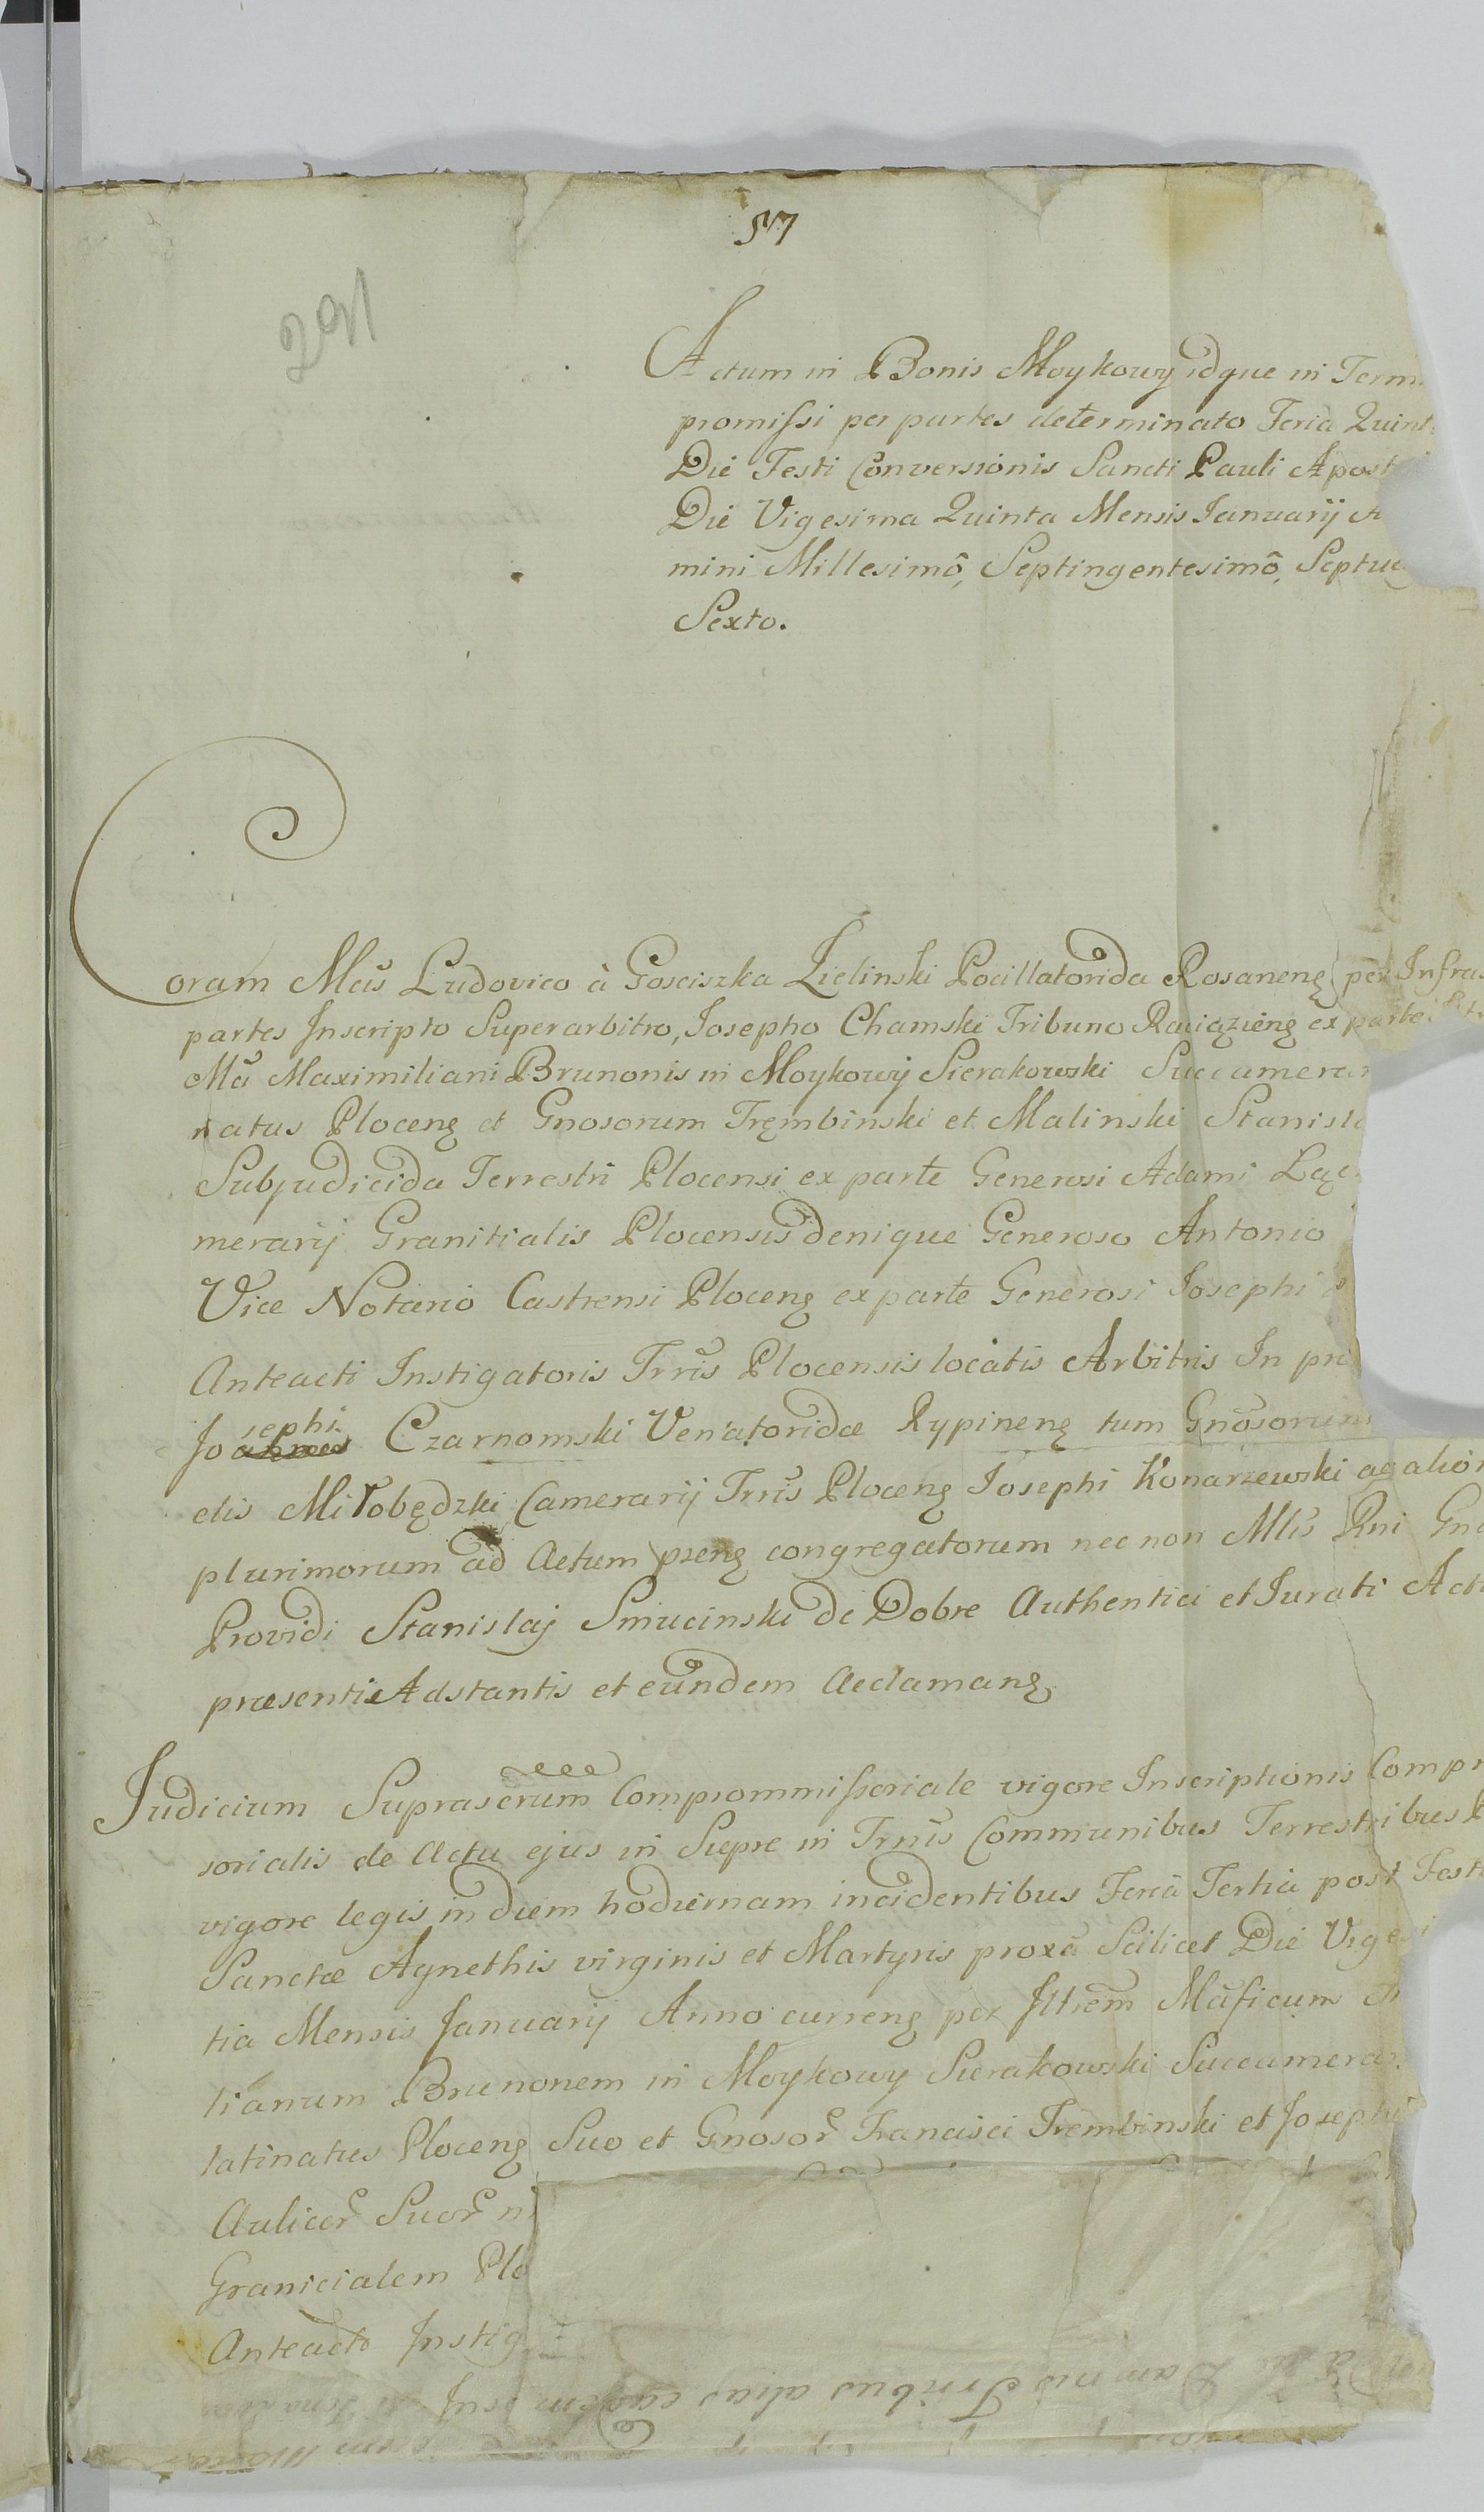 57
291
Actum in Bonis Moykowy idque in Term
promissi per partes determinato Feria Quint
Die Festi Conversionis Sancti Pauli Apost
Die Vigesima Quinta Mensis Januarij A
mini Millesimô, Septingentesimô, Septua
Sexto.
Coram Mcis Ludovico à Gosciszka Zielinski Pocillatorida Rosaneng per Infras
partes Inscripto Superarbitro, Josepho Chamski Tribuno Raciązieng ex parte
Mci Maximiliani Brunonis in Moykowy Sierakowski Succamerar
natus Ploceng et Gnosorum Trębinski et Malinski Stanisla
Subjudicida Terrestri Plocensi ex parte Generosi Adami Łąc
merarij Granitialis Plocensis denique Generoso Antonio
Vice Notario Castrensi Ploceng ex parte Generosi Josephi
Anteacti Instigatoris Trris Plocensis locatis Arbitris In pr
Josephi Czarnomski Venatoridæ Rypineng tum Gnosorum
elis Miłobędzki Camerarij Trris Ploceng Josephi Konarzewski
plurimorum ad Actum pseng congregatorum nec non Mlis Rni
Providi Stanislaj Smiucinski de Dobre Authentici et Jurati
præsenti Adstantis et eundem Acclamang
Judicium Suprascrum Comprommissoriale vigore Inscriptionis Compr
sorialis de Actu ejus in Siepre in Trnis Communibus Terrestribus
vigore legis in diem hodiernam incidentibus Feria Tertia post Fest
Sanctæ Agnethis virginis et Martyris proxa Scilicet Die Viges
tia Mensis Januarij Anno curreng per Jltrem Mficum
lianum Brunonem in Moykowy Sierakowski Succamerar
latinatus Ploceng Suo et Gnosor Francisci Trembinski et Joseph
Aulicor Suor
Granicialem Plo
Anteacto Instig